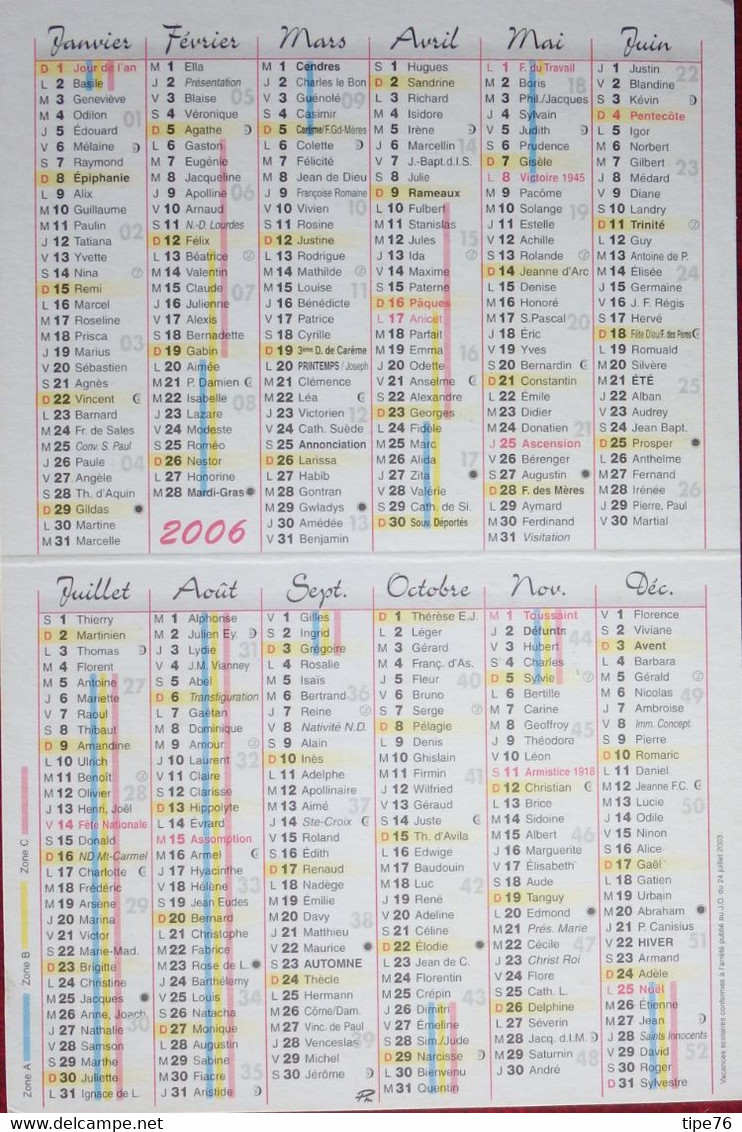 Janvier
D 1 Jour de l'an
L 2 Basile
M 3 Geneviève
M 4 Odilon
J 5 Édouard
V 6 Mélaine
S 7 Raymond
D 8 Épiphanie
L 9 Alix
M 10 Guillaume
M 11 Paulin
J 12 Tatiana
V 13 Yvette
S 14 Nina
D 15 Remi
L 16 Marcel
M 17 Roseline
M 18 Prisca
J 19 Marius
V 20 Sébastien
S 21 Agnès
D 22 Vincent
L 23 Barnard
M 24 Fr. de Sales
M 25 Conv. S. Paul
J 26 Paule
V 27 Angèle
S 28 Th. d'Aquin
D 29 Gildas
L 30 Martine
M 31 Marcelle
01
02
03
04
Février
M 1 Ella
J 2 Présentation
V 3 Blaise
S 4 Véronique
D 5 Agathe
L 6 Gaston
M 7 Eugénie
M 8 Jacqueline
J 9 Apolline
V 10 Arnaud
S 11 N.-D. Lourdes
D 12 Félix
L 13 Béatrice
M 14 Valentin
M 15 Claude
J 16 Julienne
V 17 Alexis
S 18 Bernadette
D 19 Gabin
L 20 Aimée
M 21 P. Damien
M 22 Isabelle
J 23 Lazare
V 24 Modeste
S 25 Roméo
D 26 Nestor
L 27 Honorine
M 28 Mardi-Gras
05
06
07
08
2006
Mars
M 1 Cendres
J 2 Charles le Bon
V 3 Guénolé
S 4 Casimir
D 5 Carême/F.Gd-Mères
L 6 Colette
M 7 Félicité
M 8 Jean de Dieu
J 9 Françoise Romaine
V 10 Vivien
S 11 Rosine
D 12 Justine
L 13 Rodrigue
M 14 Mathilde
M 15 Louise
J 16 Bénédicte
V 17 Patrice
S 18 Cyrille
D 19 3ème D. de Carême
L 20 PRINTEMPS / Joseph
M 21 Clémence
M 22 Léa
J 23 Victorien
V 24 Cath. Suède
S 25 Annonciation
D 26 Larissa
L 27 Habib
M 28 Gontran
M 29 Gwladys
J 30 Amédée
V 31 Benjamin
09
10
11
12
13
Avril
S 1 Hugues
D 2 Sandrine
L 3 Richard
M 4 Isidore
M 5 Irène
J 6 Marcellin
V 7 J.-Bapt.d.l.S.
S 8 Julie
D 9 Rameaux
L 10 Fulbert
M 11 Stanislas
M 12 Jules
J 13 Ida
V 14 Maxime
S 15 Paterne
D 16 Pâques
L 17 Anicet
M 18 Parfait
M 19 Emma
J 20 Odette
V 21 Anselme
S 22 Alexandre
D 23 Georges
L 24 Fidèle
M 25 Marc
M 26 Alida
J 27 Zita
V 28 Valérie
S 29 Cath. de Si.
D 30 Souv. Déportés
14
15
16
17
Mai
L 1 F. du Travail
M 2 Boris
M 3 Phil./Jacques
J 4 Sylvain
V 5 Judith
S 6 Prudence
D 7 Gisèle
L 8 Victoire 1945
M 9 Pacôme
M 10 Solange
J 11 Estelle
V 12 Achille
S 13 Rolande
D 14 Jeanne d'Arc
L 15 Denise
M 16 Honoré
M 17 S.Pascal
J 18 Éric
V 19 Yves
S 20 Bernardin
D 21 Constantin
L 22 Émile
M 23 Didier
M 24 Donatien
J 25 Ascension
V 26 Bérenger
S 27 Augustin
D 28 F. des Mères
L 29 Aymard
M 30 Ferdinand
M 31 Visitation
18
19
20
21
Juin
J 1 Justin
V 2 Blandine
S 3 Kévin
D 4 Pentecôte
L 5 Igor
M 6 Norbert
M 7 Gilbert
J 8 Médard
V 9 Diane
S 10 Landry
D 11 Trinité
L 12 Guy
M 13 Antoine de P.
M 14 Élisée
J 15 Germaine
V 16 J. F. Régis
S 17 Hervé
D 18 Fête Dieu/F. des Pères
L 19 Romuald
M 20 Silvère
M 21 ÉTÉ
J 22 Alban
V 23 Audrey
S 24 Jean Bapt.
D 25 Prosper
L 26 Anthelme
M 27 Fernand
M 28 Irénée
J 29 Pierre, Paul
V 30 Martial
22
23
24
25
26
Juillet
S 1 Thierry
D 2 Martinien
L 3 Thomas
M 4 Florent
M 5 Antoine
J 6 Mariette
V 7 Raoul
S 8 Thibaut
D 9 Amandine
L 10 Ulrich
M 11 Benoît
M 12 Olivier
J 13 Henri, Joël
V 14 Fête Nationale
S 15 Donald
D 16 ND Mt-Carmel
L 17 Charlotte
M 18 Frédéric
M 19 Arsène
J 20 Marina
V 21 Victor
S 22 Marie-Mad.
D 23 Brigitte
L 24 Christine
M 25 Jacques
M 26 Anne, Joach
J 27 Nathalie
V 28 Samson
S 29 Marthe
D 30 Juliette
L 31 Ignace de L.
27
28
29
30
Août
M 1 Alphonse
M 2 Julien Ey.
J 3 Lydie
V 4 J.M. Vianney
S 5 Abel
D 6 Transfiguration
L 7 Gaétan
M 8 Dominique
M 9 Amour
J 10 Laurent
V 11 Claire
S 12 Clarisse
D 13 Hippolyte
L 14 Évrard
M 15 Assomption
M 16 Armel
J 17 Hyacinthe
V 18 Hélène
S 19 Jean Eudes
D 20 Bernard
L 21 Christophe
M 22 Fabrice
M 23 Rose de L.
J 24 Barthélemy
V 25 Louis
S 26 Natacha
D 27 Monique
L 28 Augustin
M 29 Sabine
M 30 Fiacre
J 31 Aristide
31
32
33
34
35
Sept.
V 1 Gilles
S 2 Ingrid
D 3 Grégoire
L 4 Rosalie
M 5 Isaïs
M 6 Bertrand
J 7 Reine
V 8 Nativité N.D.
S 9 Alain
D 10 Inès
L 11 Adelphe
M 12 Apollinaire
M 13 Aimé
J 14 Ste-Croix
V 15 Roland
S 16 Édith
D 17 Renaud
L 18 Nadège
M 19 Émilie
M 20 Davy
J 21 Matthieu
V 22 Maurice
S 23 AUTOMNE
D 24 Thècle
L 25 Hermann
M 26 Côme/Dam.
M 27 Vinc. de Paul
J 28 Venceslas
V 29 Michel
S 30 Jérôme
36
37
38
39
Octobre
D 1 Thérèse E.J.
L 2 Léger
M 3 Gérard
M 4 Franç. d'As.
J 5 Fleur
V 6 Bruno
S 7 Serge
D 8 Pélagie
L 9 Denis
M 10 Ghislain
M 11 Firmin
J 12 Wilfried
V 13 Géraud
S 14 Juste
D 15 Th. d'Avila
L 16 Edwige
M 17 Baudouin
M 18 Luc
J 19 René
V 20 Adeline
S 21 Céline
D 22 Élodie
L 23 Jean de C.
M 24 Florentin
M 25 Crépin
J 26 Dimitri
V 27 Émeline
S 28 Sim./Jude
D 29 Narcisse
L 30 Bienvenu
M 31 Quentin
40
41
42
43
Nov.
M 1 Toussaint
J 2 Défunts
V 3 Hubert
S 4 Charles
D 5 Sylvie
L 6 Bertille
M 7 Carine
M 8 Geoffroy
J 9 Théodore
V 10 Léon
S 11 Armistice 1918
D 12 Christian
L 13 Brice
M 14 Sidoine
M 15 Albert
J 16 Marguerite
V 17 Élisabeth
S 18 Aude
D 19 Tanguy
L 20 Edmond
M 21 Prés. Marie
M 22 Cécile
J 23 Christ Roi
V 24 Flore
S 25 Cath. L.
D 26 Delphine
L 27 Séverin
M 28 Jacq. d.l.M.
M 29 Saturnin
J 30 André
44
45
46
47
48
Déc.
V 1 Florence
S 2 Viviane
D 3 Avent
L 4 Barbara
M 5 Gérald
M 6 Nicolas
J 7 Ambroise
V 8 Imm. Concept.
S 9 Pierre
D 10 Romaric
L 11 Daniel
M 12 Jeanne F.C.
M 13 Lucie
J 14 Odile
V 15 Ninon
S 16 Alice
D 17 Gaël
L 18 Gatien
M 19 Urbain
M 20 Abraham
J 21 P. Canisius
V 22 HIVER
S 23 Armand
D 24 Adèle
L 25 Noël
M 26 Étienne
M 27 Jean
J 28 Saints Innocents
V 29 David
S 30 Roger
D 31 Sylvestre
49
50
51
52
Zone C
Zone B
Zone A
Vacances scolaires conformes à l'arrêté publié au J.O. du 24 juillet 2003
delcampe.net
tipe76